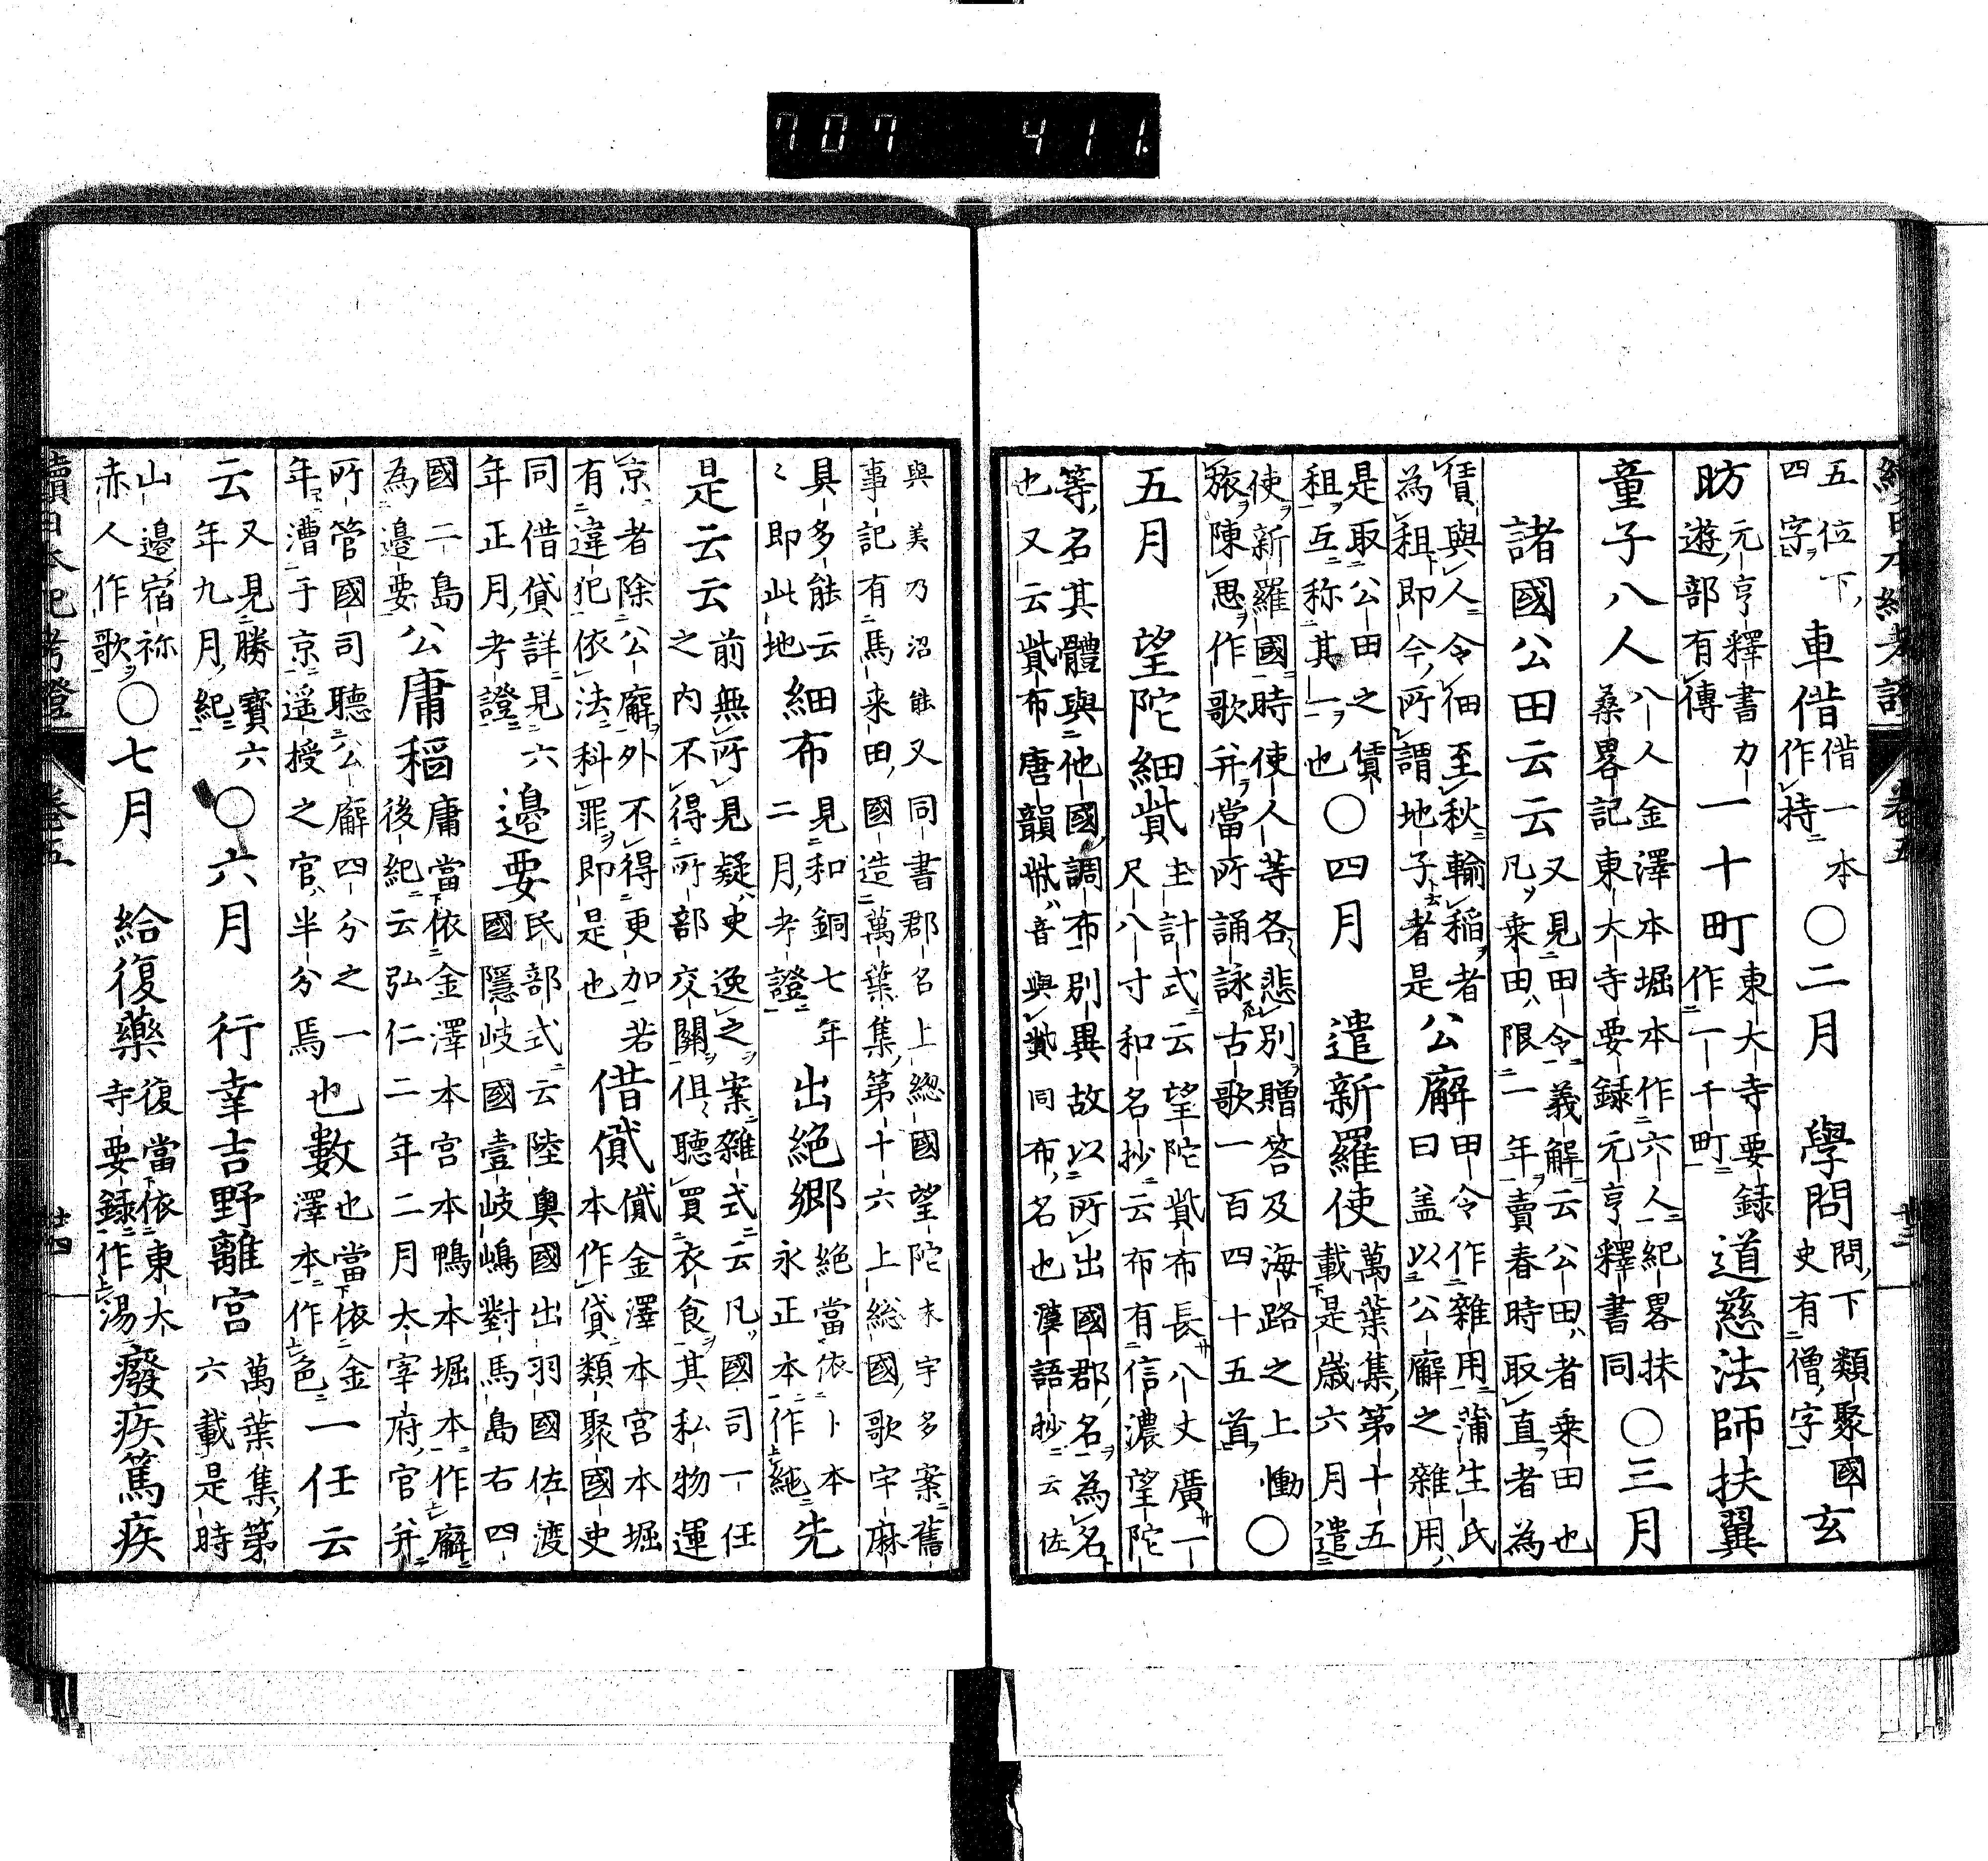 續日本紀考證 卷五 廿三
五位下、
四字ヲ
車借
借一本
作持
○二月 學問
問、下類聚國
史有僧字
玄
昉
元亨釋書力
遊部有傳
一十町
東大寺要録
作一千町
道慈法師扶翼
童子八人
八人金澤本堀本作六人紀畧扶
桑畧記東大寺要録元亨釋書同
○三月
諸國公田云云
又見田令義解云公田者乗田也
凡乗田限一年賣春時取直者為
賃與人令佃至秋輸稲者
為租即今所謂地子者是
公廨
田令作雜用蒲生氏
曰盖以公廨之雜用
是取公田之賃
租互称其一也
○四月 遣新羅使
萬葉集第十五
載是歳六月遣
使新羅國時使人等各悲別贈答及海路之上慟
旅陳思作歌并當所誦詠古歌一百四十五首
○
五月 望陀細貲
主計式云望陀貲布長八丈廣一
尺八寸和名抄云布有信濃望陀
等名其體與他國調布別異故以所出國郡名為名
也又云貲布唐韻音與貲同布名也漢語抄云佐
與美乃沼能又同書郡名上総國望陀末宇多案舊
事記有馬来田國造萬葉集第十六上総國歌宇麻
具多能云
〻即此地
細布
見和銅七年
二月考證
出絶郷
絶當依卜本
永正本作純
先
是云云
前無所見疑史逸之案雜式云凡國司一任
之内不得所部交關俱聴買衣食其私物運
京者除公廨外不得更加若
有違犯依法科罪即是也
借貸
貸金澤本宮本堀
本作貸類聚國史
同借貸詳見六
年正月考證
邊要
民部式云陸奥國出羽國佐渡
國隱岐國壹岐嶋對馬島右四
國二島
為邊要
公廨稲
廨當依金澤本宮本鴨本堀本作廨
後紀云弘仁二年二月大宰府官并
所管國司聴公廨四分之一
年漕于京遥授之官半分焉
也數
也當依金
澤本作色
一任云
云
又見勝寳六
年九月紀
○六月 行幸吉野離宮
萬葉集第
六載是時
山邊宿祢
赤人作歌
○七月 給復藥
復當依東大
寺要録作湯
癈疾篤疾
續日本紀考證 卷五 廿四